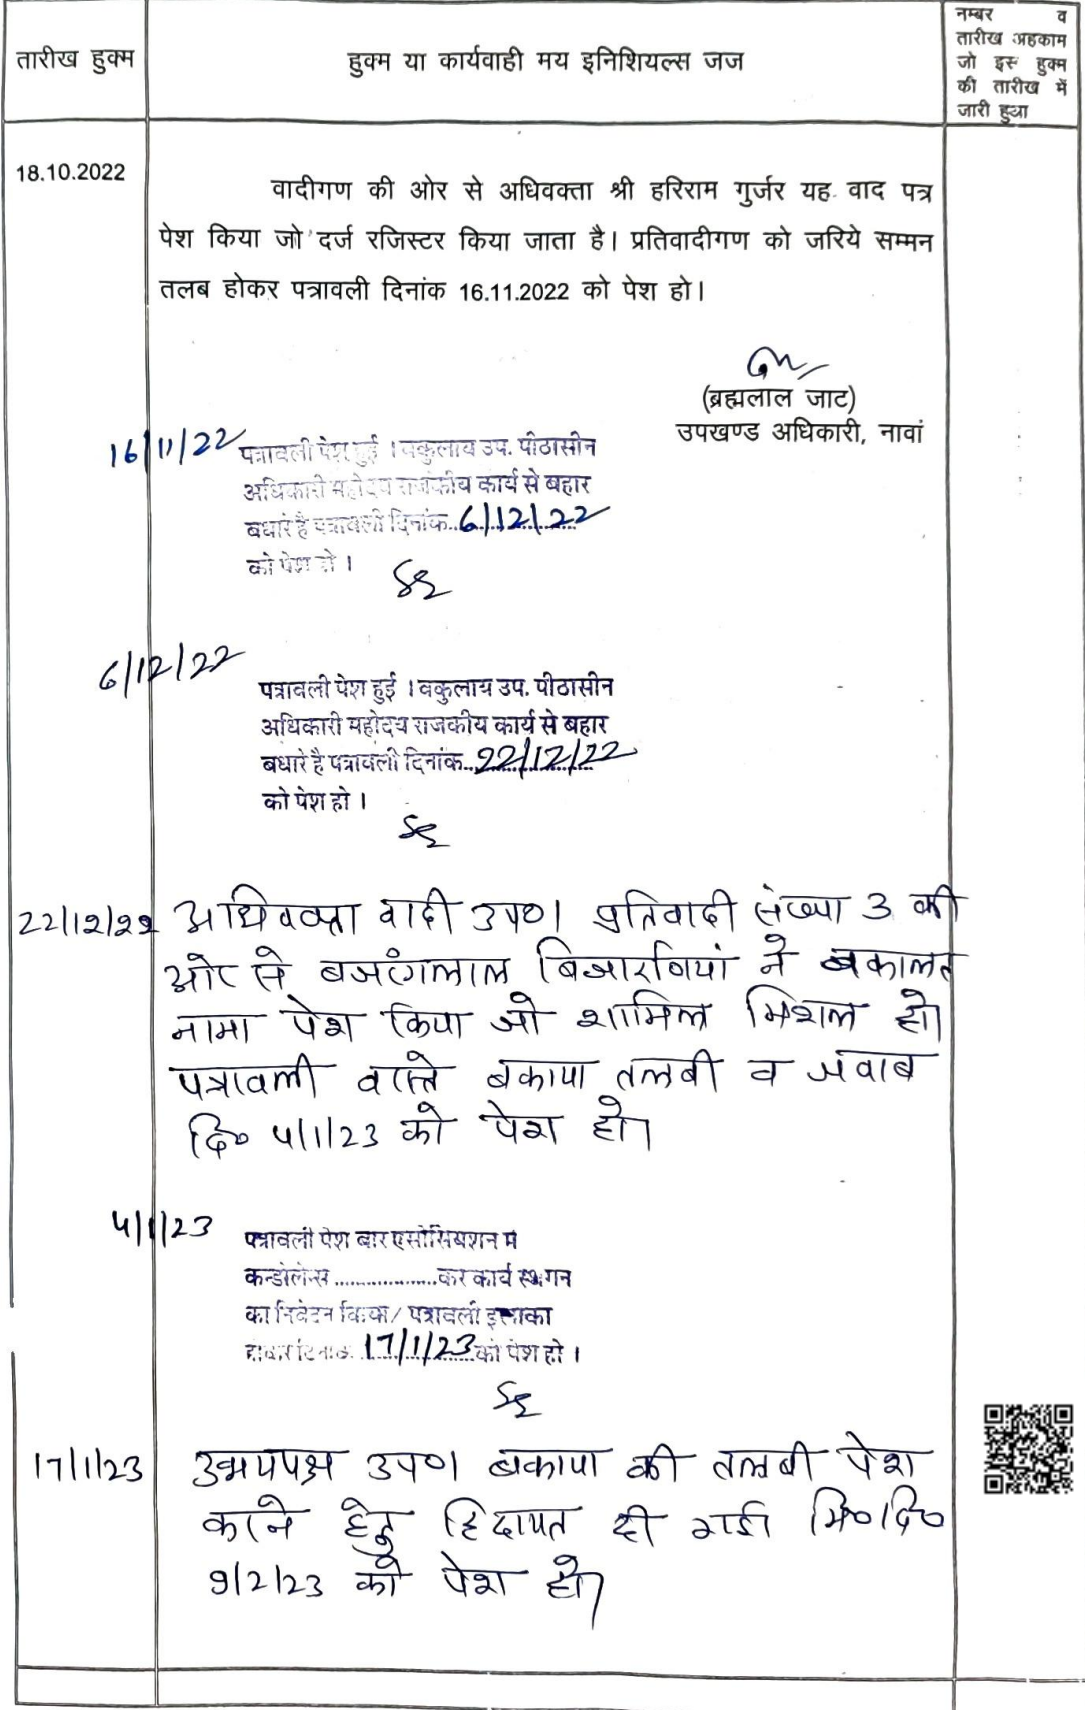 तारीख हुक्म
हुक्म या कार्यवाही मय इनिशियल्स जज
नम्बर व
तारीख अहकाम
जो इस हुक्म
की तारीख में
जारी हुआ
18.10.2022
वादीगण की ओर से अधिवक्ता श्री हरिराम गुर्जर यह वाद पत्र
पेश किया जो दर्ज रजिस्टर किया जाता है। प्रतिवादीगण को जरिये सम्मन
तलब होकर पत्रावली दिनांक 16.11.2022 को पेश हो।
(ब्रह्मलाल जाट)
उपखण्ड अधिकारी, नावां
16/11/22
पत्रावली पेश हुई । वकुलाय उप. पीठासीन
अधिकारी महोदय राजकीय कार्य से बहार
बधारे है पत्रावली दिनांक..6/12/22
को पेश हो ।
6/12/22
पत्रावली पेश हुई । वकुलाय उप. पीठासीन
अधिकारी महोदय राजकीय कार्य से बहार
बधारे है पत्रावली दिनांक..22/12/22
को पेश हो ।
22/12/22 अधिवक्ता वादी उप०। प्रतिवादी संख्या 3 की
ओर से बजरंगलाल बिजारणियां ने वकालत
नामा पेश किया जो शामिल मिशल हो।
पत्रावली वास्ते बकाया तलबी व जवाब
दि० 4/1/23 को पेश हो।
4/1/23
पत्रावली पेश बार एसोसियशन मे
कन्डोलेन्स ..................कर कार्य स्थगन
का निवेदन किया/ पत्रावली इलाका
होकर दिनांक 17/1/23 को पेश हो ।
17/1/23 उभयपक्ष उप०। बकाया की तलबी पेश
करने हेतु हिदायत दी गई। मि०।दि०
9/2/23 को पेश हो।